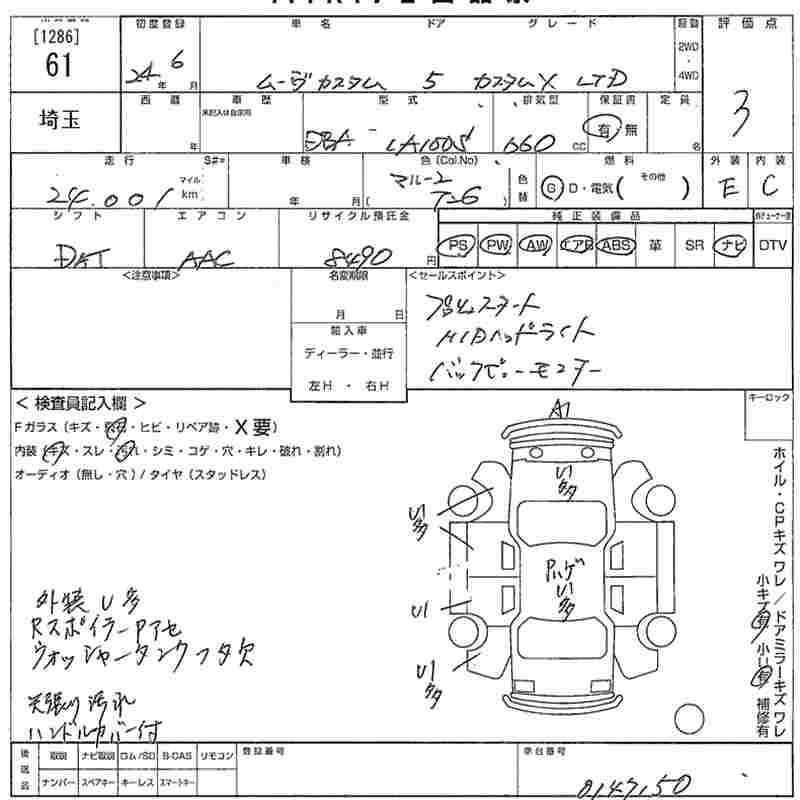 [1286]
61
初度登録
24年 6月
車名 ドア グレード
ムーヴカスタム 5 カスタムX LTD
駆動
2WD
4WD
評価点
3
埼玉
西暦
年
車歴
未記入は自家用
型式
DBA- LA100S
排気量
660 CC
保証書
有・無
定員
名
走行 S#=
24,001
マイル
km
車検
年 月
色(Col.No)
マルーン
( T-6 )
色替
燃料
G・D・電気( その他 )
外装
E
内装
C
シフト
DAT
エアコン
AAC
リサイクル預託金
8490円
純正装備品
PS PW AW エアB ABS 革 SR ナビ DTV
<注意事項>
名変期限
月 日
輸入車
ディーラー・並行
左H ・ 右H
<セールスポイント>
プッシュスタート
HIDヘッドライト
バックビューモニター
< 検査員記入欄 >
Fガラス(キズ・飛石・ヒビ・リペア跡・X要)
内装(キズ・スレ・汚れ・シミ・コゲ・穴・キレ・破れ・割れ)
オーディオ(無し・穴)/タイヤ(スタッドレス)
キーロック
A1
U1
多
U1
多
Pハゲ
U1
多
U1
U1
多
ホイル・CPキズ ワレ/ドアミラーキズ ワレ
小キズ有 小U有 補修有
外装 U多
RスポイラーPアセ
ウォッシャータンクフタ欠
天張り汚れ
ハンドルカバー付
後送品
取説 ナビ取説 ロム/SD B-CAS リモコン
ナンバー スペアキー キーレス スマートキー
登録番号
車台番号
0147150